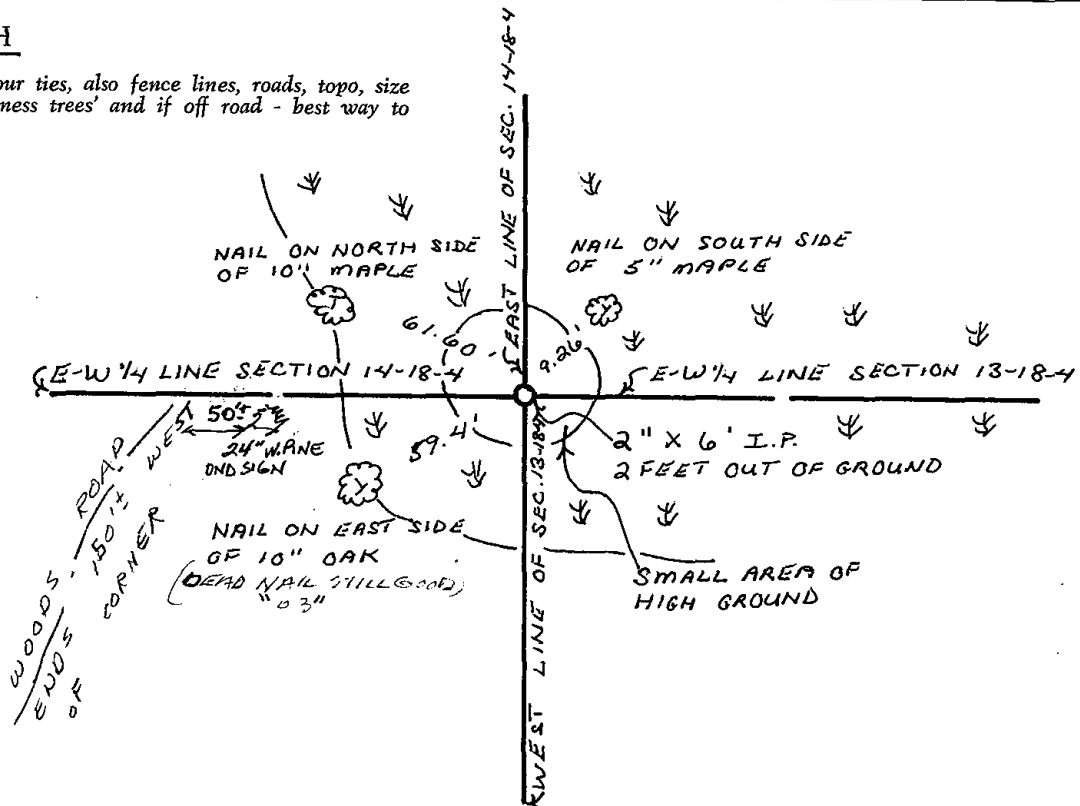 H
our ties, also fence lines, roads, topo, size
ness trees' and if off road - best way to
EAST LINE OF SEC. 14-18-4
NAIL ON NORTH SIDE
OF 10" MAPLE
NAIL ON SOUTH SIDE
OF 5" MAPLE
61.60'
9.26'
E-W 1/4 LINE SECTION 14-18-4
E-W 1/4 LINE SECTION 13-18-4
50'±
24" W. PINE
AND SIGN
59.4'
2" X 6' I.P.
2 FEET OUT OF GROUND
WOODS ROAD
ENDS 150'± WEST
OF CORNER
NAIL ON EAST SIDE
OF 10" OAK
(DEAD NAIL STILL GOOD)
"03"
SMALL AREA OF
HIGH GROUND
WEST LINE OF SEC. 13-18-4